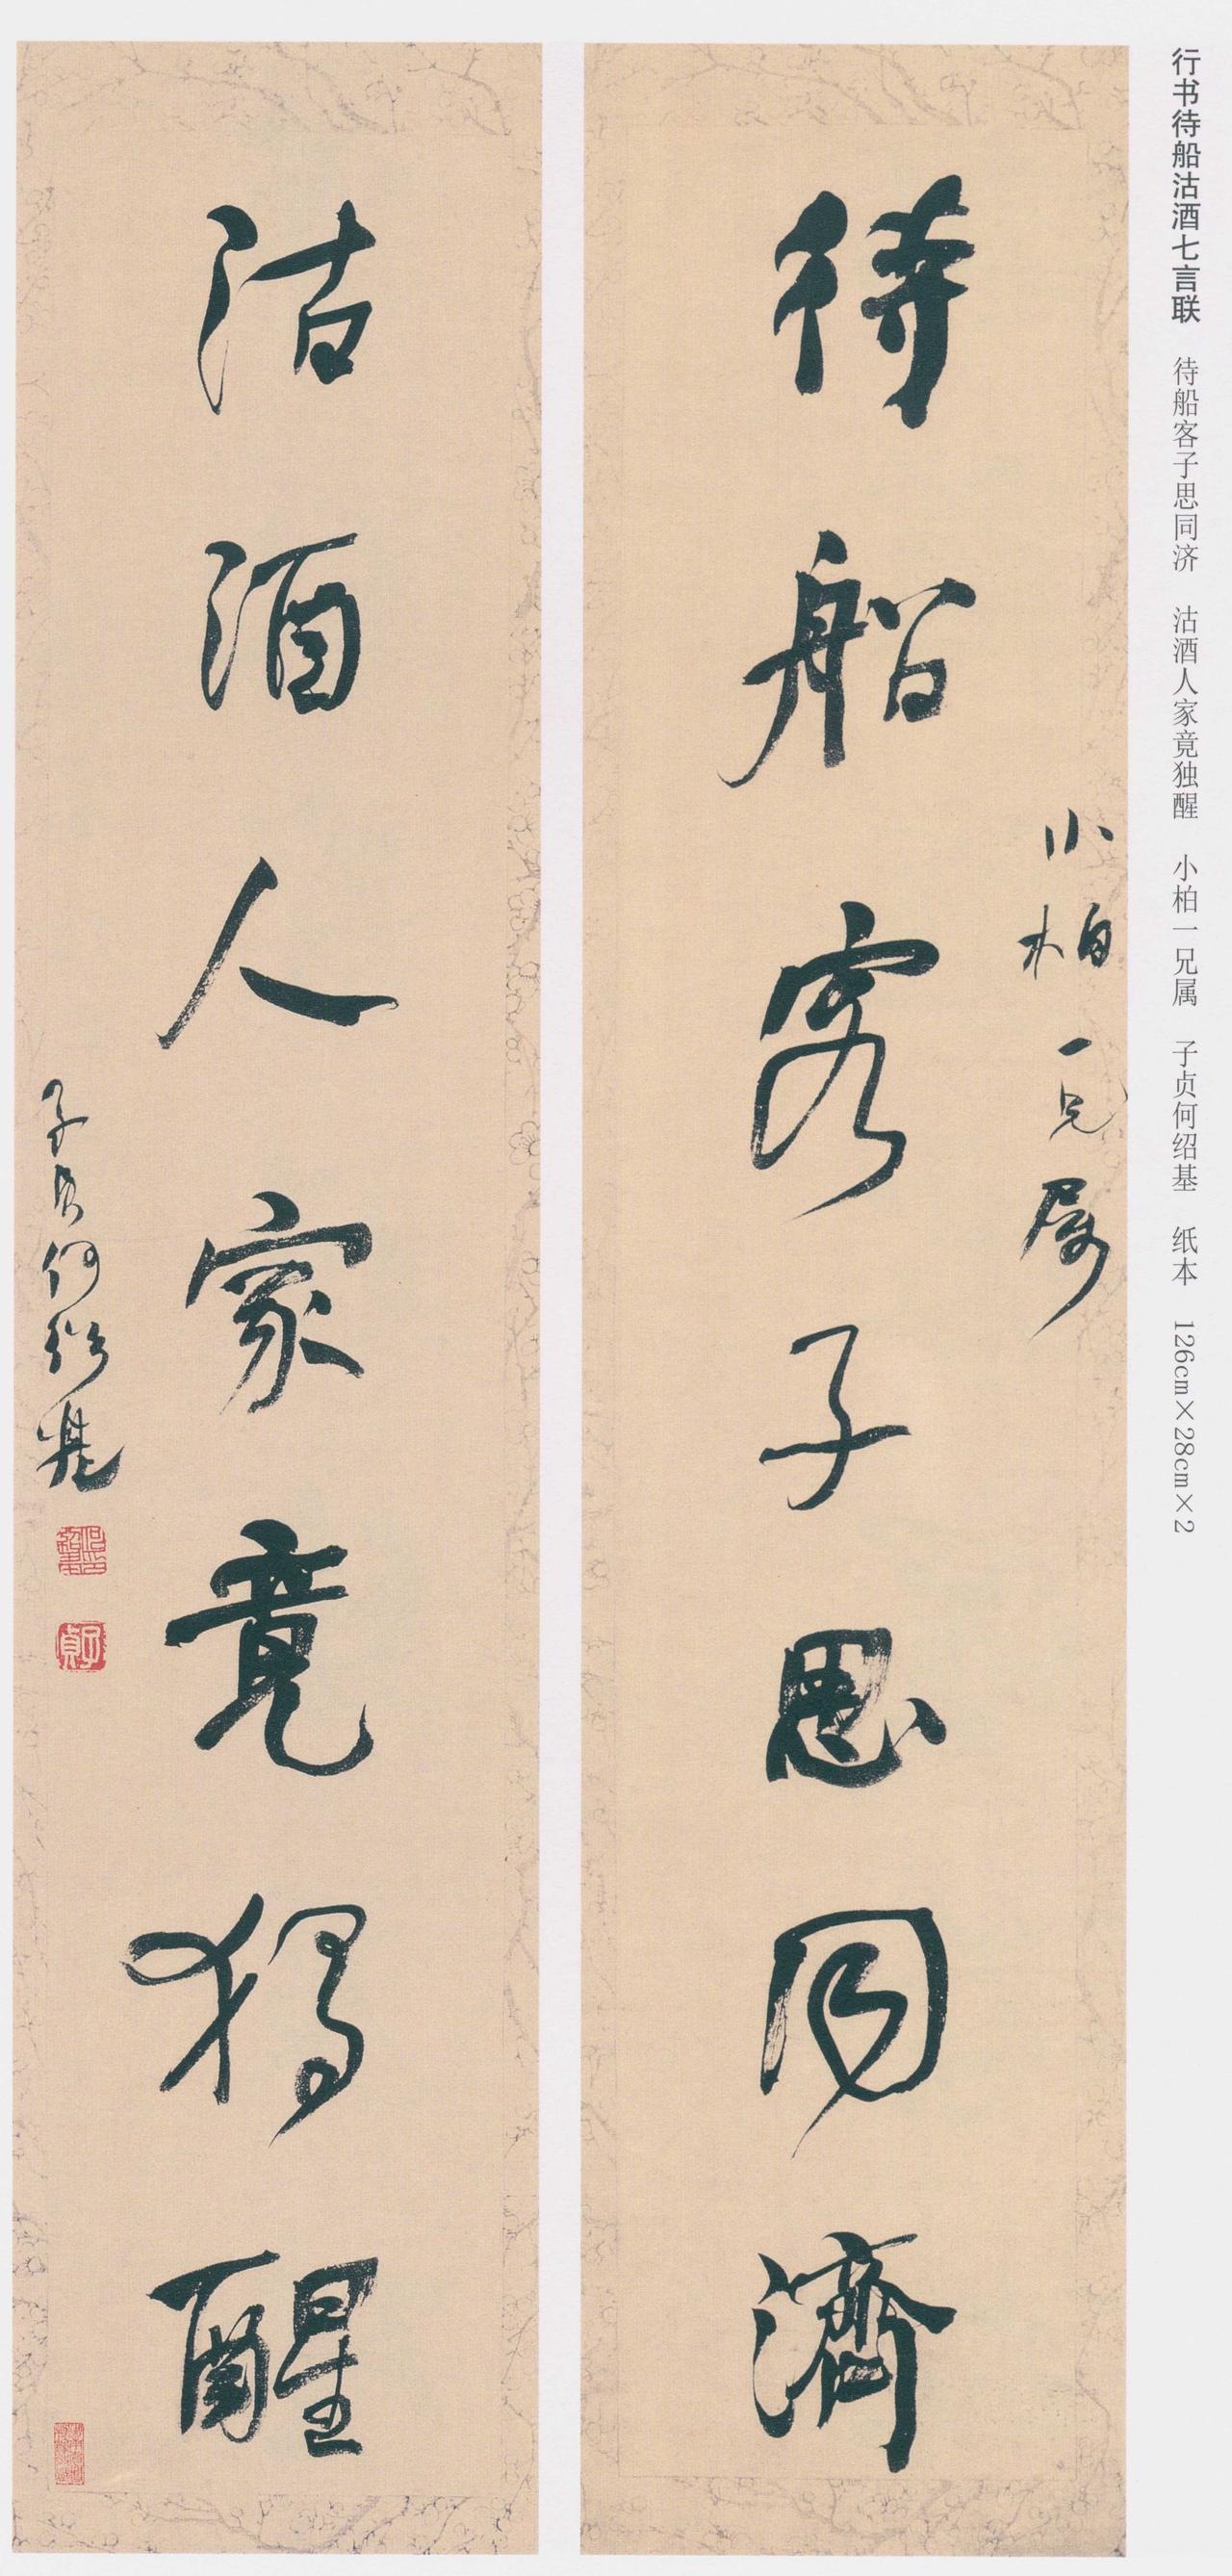 行书待船沽酒七言联 待船客子思同济 沽酒人家竟独醒 小柏一兄属 子贞何绍基 纸本 126cm×28cm×2
小柏一兄属
待船客子思同濟
沽酒人家竟獨醒
子貞何紹基
子貞